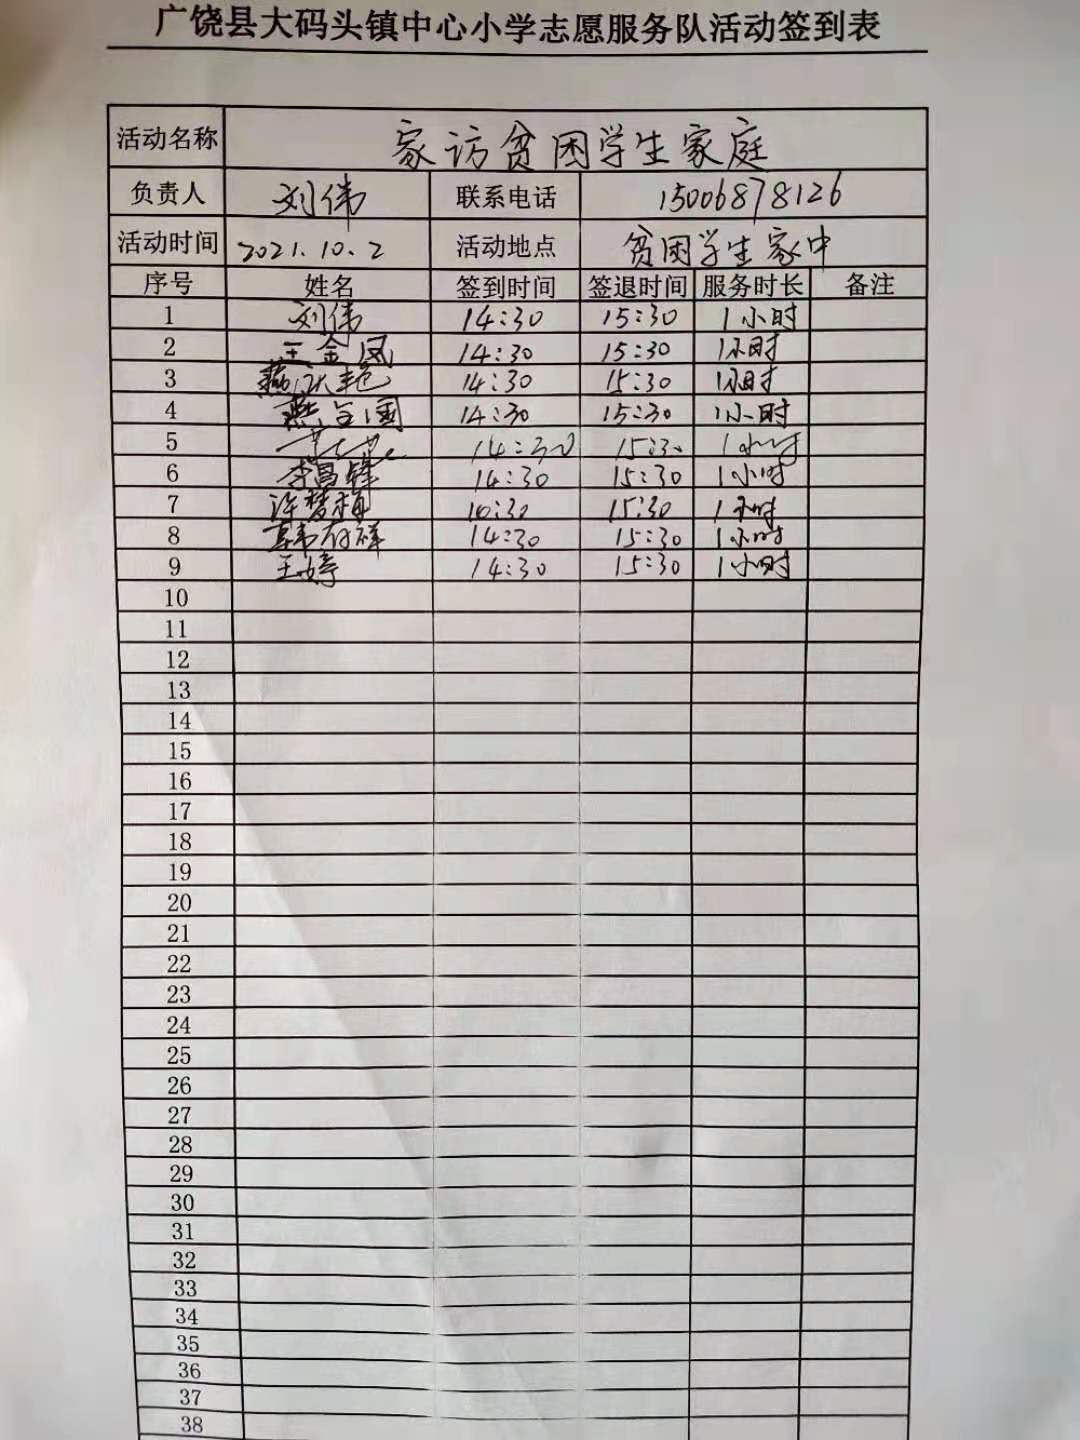 广饶县大码头镇中心小学志愿服务队活动签到表
活动名称 家访贫困学生家庭
负责人 刘伟 联系电话 15006878126
活动时间 2021.10.2 活动地点 贫困学生家中
序号 姓名 签到时间 签退时间 服务时长 备注
1 刘伟 14:30 15:30 1小时
2 王金凤 14:30 15:30 1小时
3 燕 14:30 15:30 1小时
4 燕 国 14:30 15:30 1小时
5 14:30 15:30 1小时
6 李昌锋 14:30 15:30 1小时
7 许梦 15:30 1小时
8 韩存祥 14:30 15:30 1小时
9 王婷 14:30 15:30 1小时
10
11
12
13
14
15
16
17
18
19
20
21
22
23
24
25
26
27
28
29
30
31
32
33
34
35
36
37
38